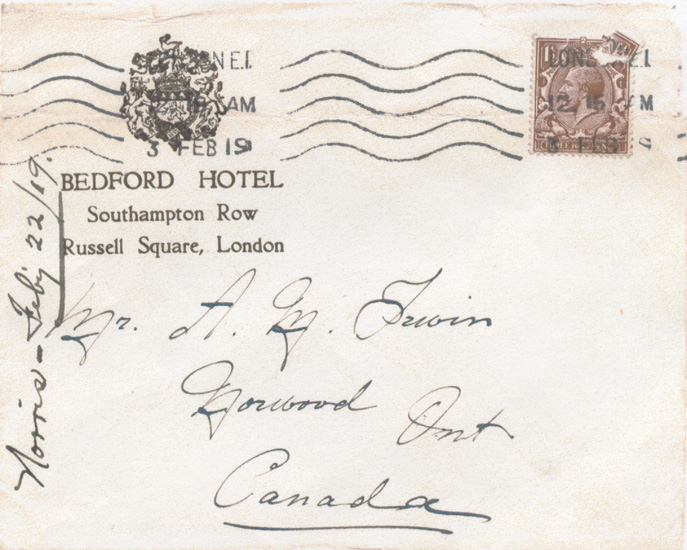 LONDON E.I.
12 15 AM
3 FEB 19
LONDON E.I.
12 15 AM
3 FEB 19
BEDFORD HOTEL
Southampton Row
Russell Square, London
Mr. A. M. Irwin
Norwood Ont
Canada
Norris - Feb'y 22/19.